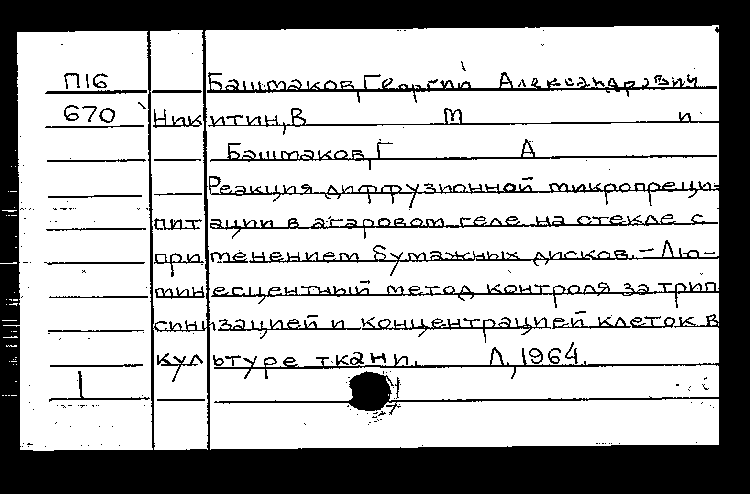 П16 Башмаков, Георгий Александрович
670 Никитин, В М и
Башмаков, Г А
Реакция диффузионной микропреци-
питации в агаровом геле на стекле с
применением бумажных дисков. - Лю-
минесцентный метод контроля за трип
синизацией и концентрацией клеток в
культуре ткани. Л, 1964.
1